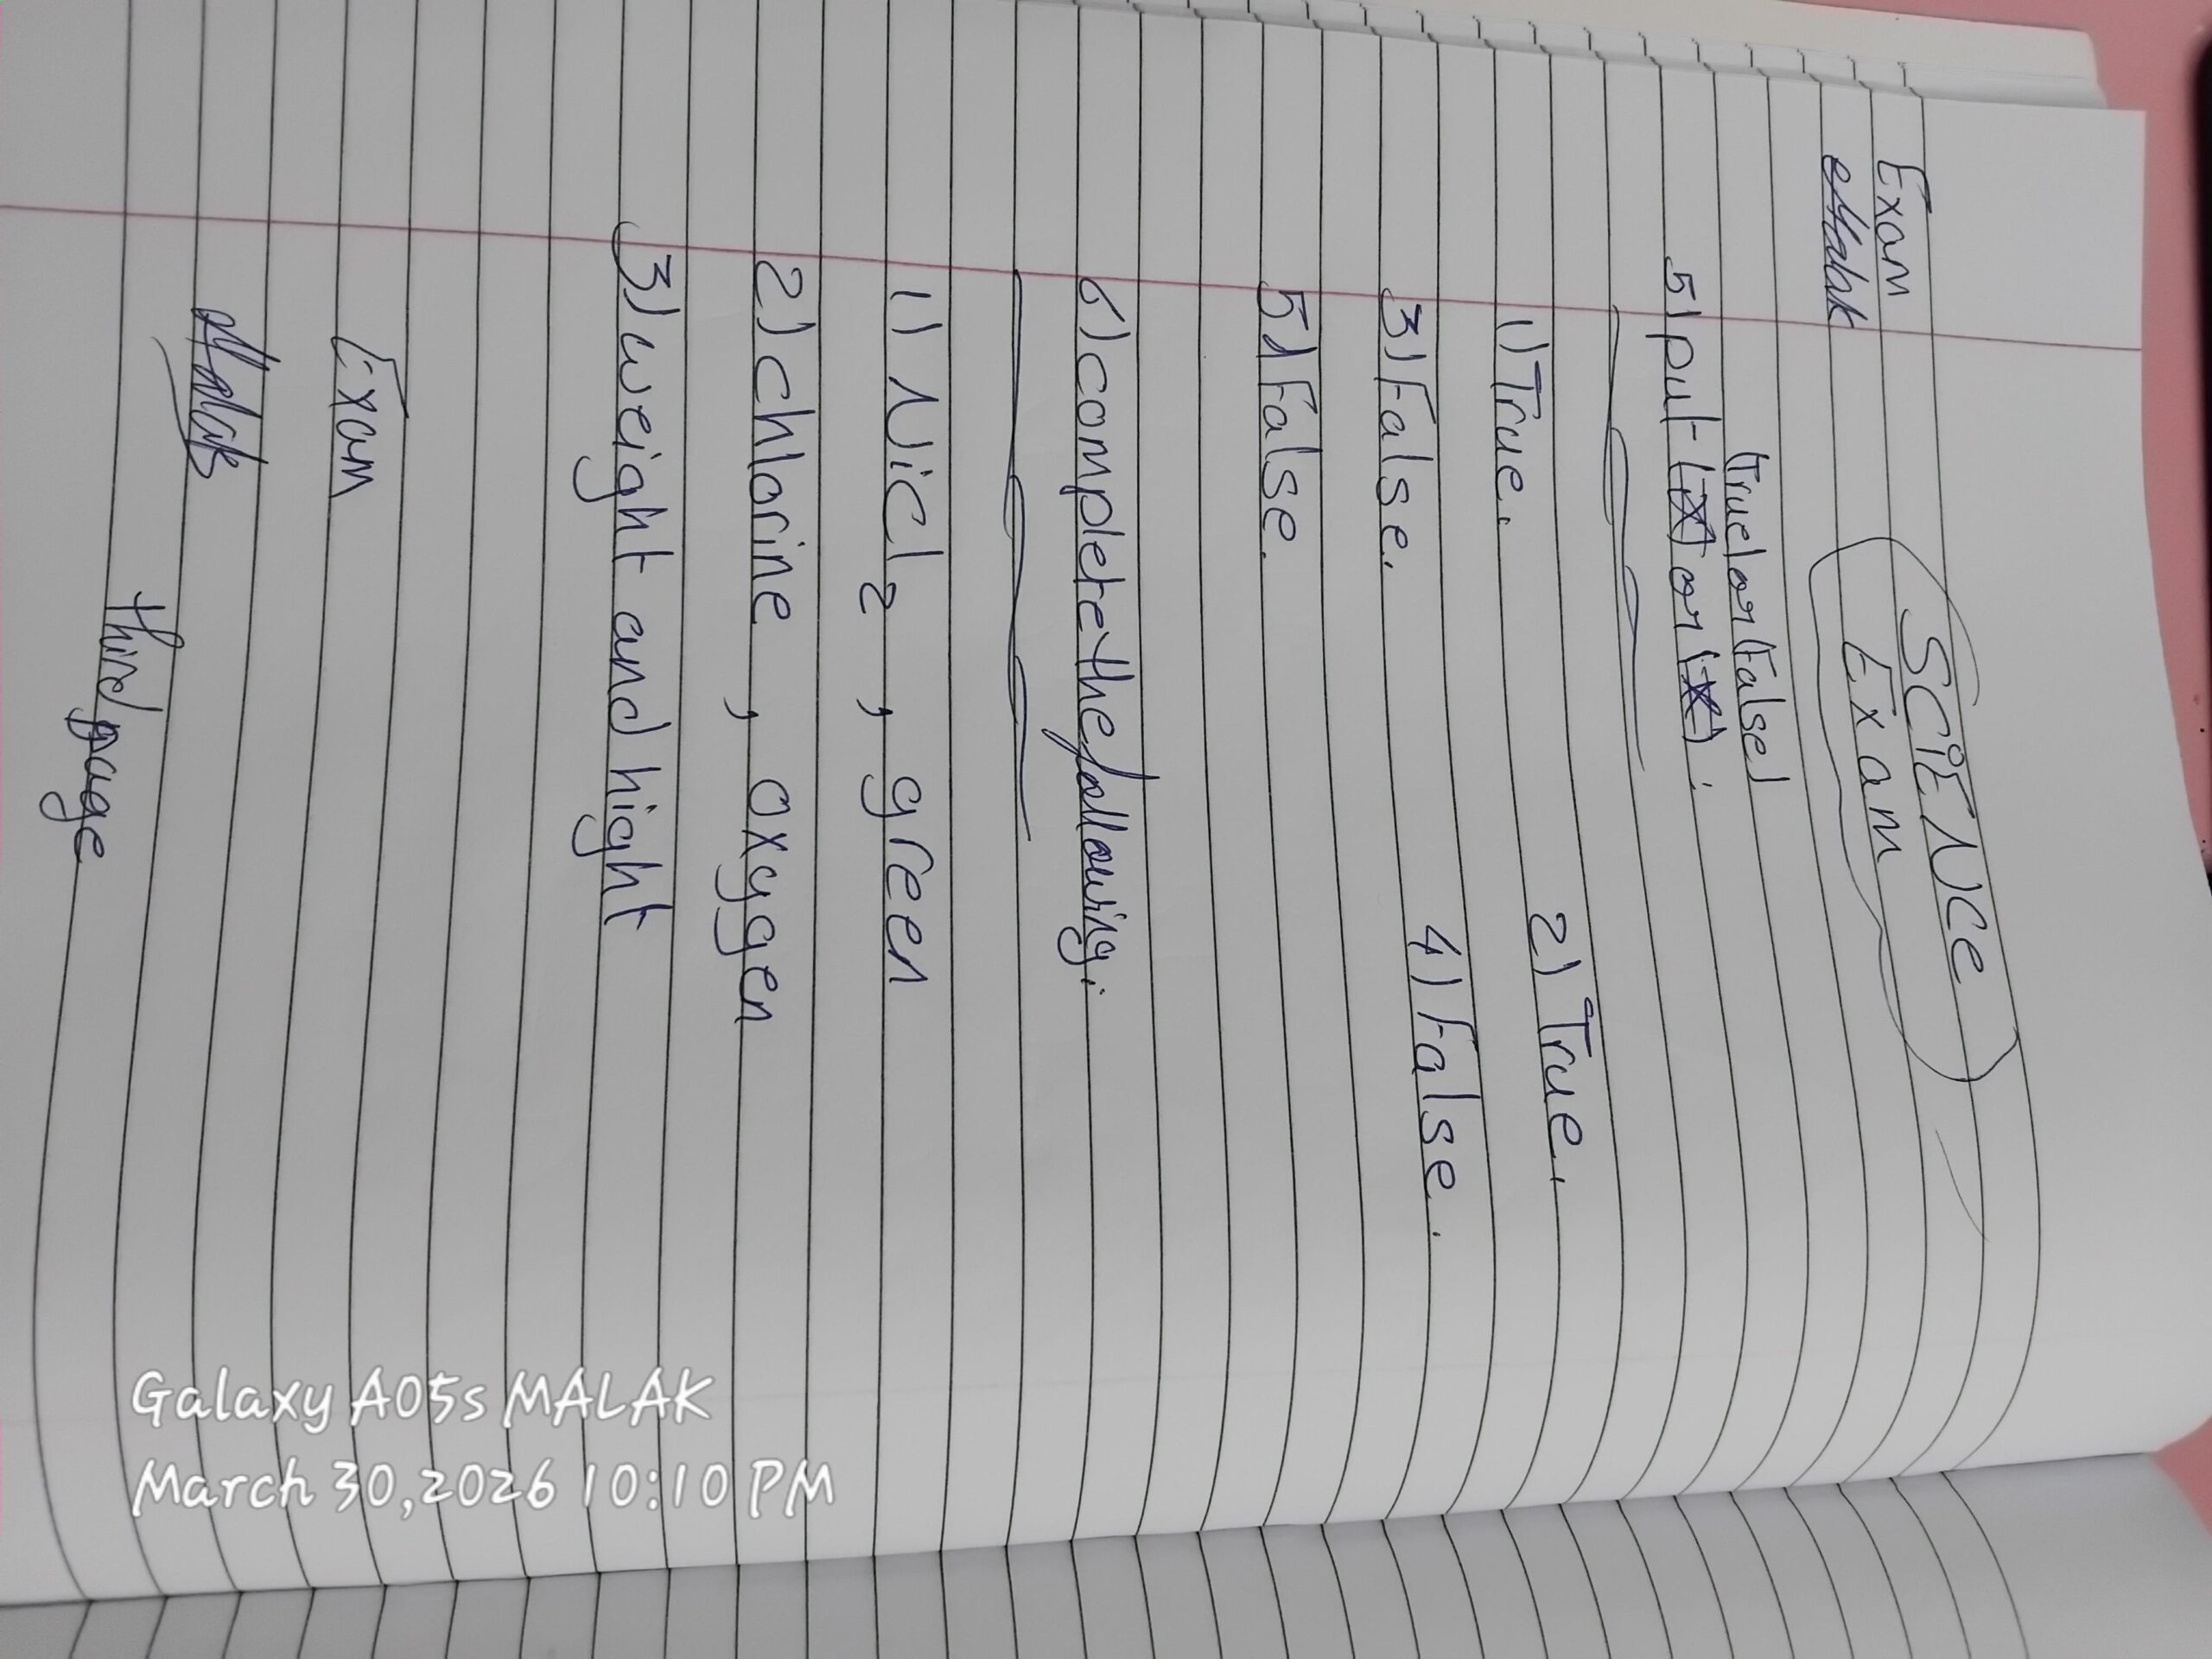 Exam
Malak
SCiENCe
Exam
(True) or (False)
5) put (✓) or (x) :
1) True.
2) True.
3) False.
4) False.
5) False.
6) complete the following:
1) NiCl2 , green
2) chlorine , oxygen
3) weight and hight
Exam
Malak
third page
Galaxy A05s MALAK
March 30,2026 10:10 PM